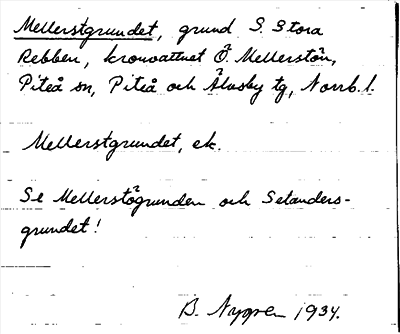 Mellerstgrundet, grund S. Stora
Rebben, kronovattnet Ö. Mellerstön,
Piteå sn, Piteå och Älvsby tg, Norrb. l.
Mellerstgrundet, ek.
Se Mellerstögrunden och Selanders-
grundet!
B. Nygren 1934.